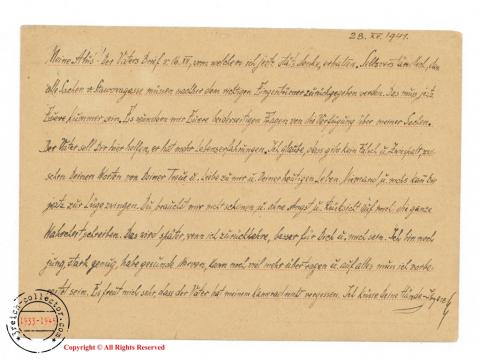 28. XII. 1941.
Meine Atüs! Des Vaters Brief v. 16. XI, vom welchem ich jetzt denke, erhalten. Selbstverständlich, dass
alle Sachen müssen wieder dem richtigen Eigentümer zurückgegeben werden. Das muss jetzt
Euere Kümmer sein. Es wundern mir Euere beiderseitigen Fragen von der Verfügung über meiner Sachen.
Der Vater soll Dir hier helfen, er hat mehr Lebenserfahrungen. Ich glaube, dass gibt kein Falsch u. Zwiespalt zwi-
schen Deinen Worten von Deiner Treue u. Liebe zu mir u. Deiner heutigen Leben. Niemand u. nichts kann Dir
jetzt zur Lüge zwingen. Du brauchst mir nicht schonen u. ohne Angst u. Rücksicht auf mich die ganze
Wahrheit schreiben. Das wird später, wenn ich zurückkehre, besser für Dich u. mich sein. Ich bin noch
jung, stark genug, habe gesunde Nerven, kann noch viel mehr übertragen u. auf alles muss ich vorbe-
reitet sein. Es freut mich sehr, dass der Vater hat meinen Kamerad nicht vergessen. Ich küsse Deine Hände -
jreich-collector.com
1933-1945
Copyright © All Rights Reserved